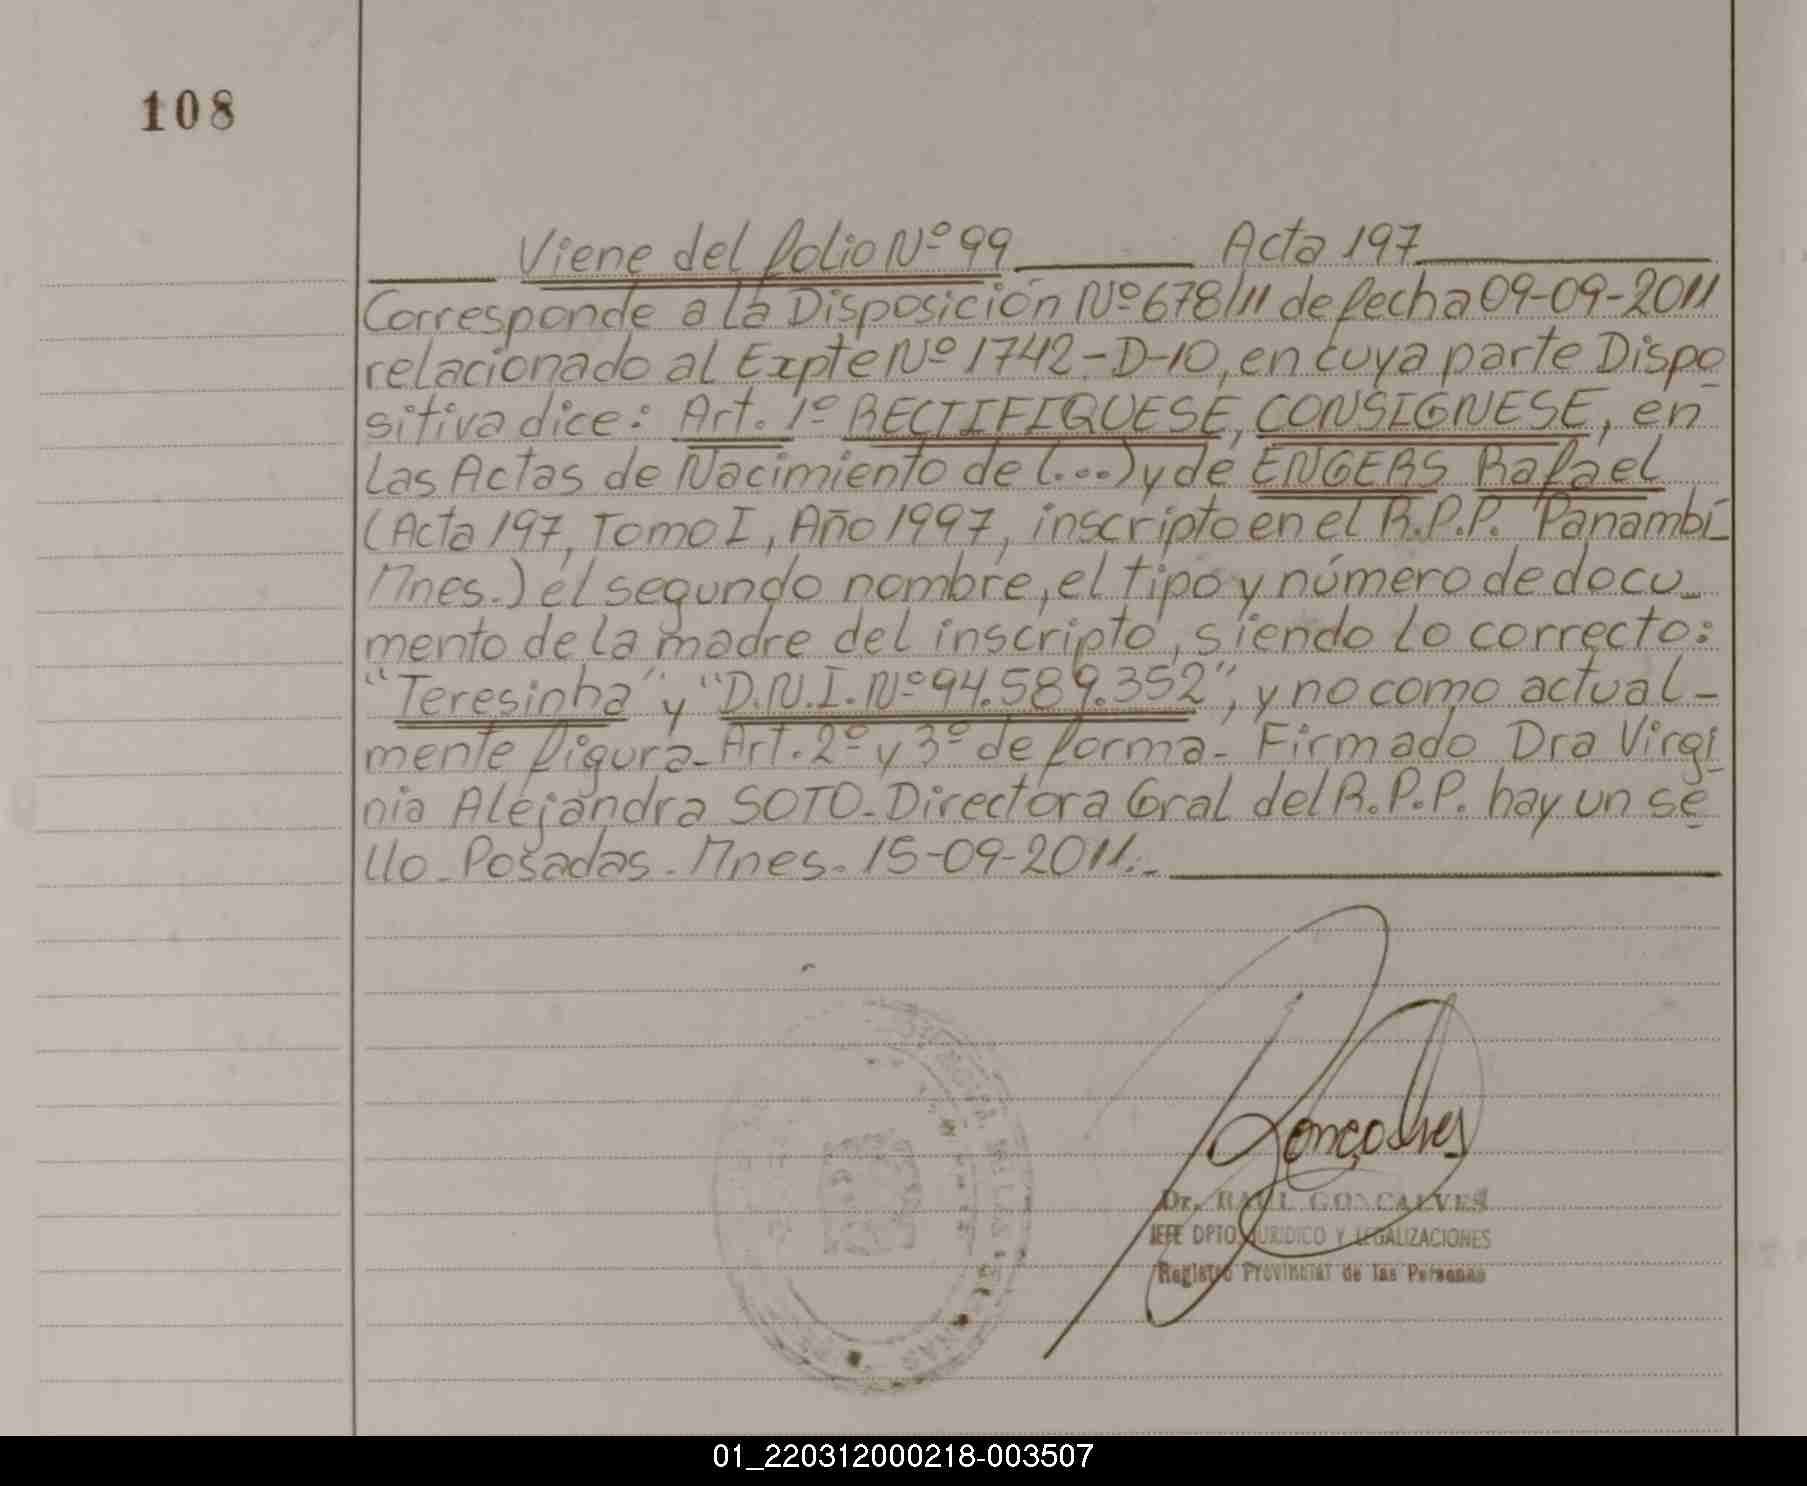 108
Viene del folio Nº 99 Acta 197
Corresponde a la Disposición Nº 678/11 de fecha 09-09-2011
relacionado al Expte Nº 1742-D-10, en cuya parte Dispo
sitiva dice: Art. 1º RECTIFIQUESE, CONSIGNESE, en
las Actas de Nacimiento de (...) y de ENGERS Rafael
(Acta 197, Tomo I, Año 1997, inscripto en el R.P.P. Panambí-
Mnes.) el segundo nombre, el tipo y número de docu-
mento de la madre del inscripto, siendo lo correcto:
"Teresinha" y "D.N.I. Nº 94.589.352", y no como actual-
mente figura- Art. 2º y 3º de forma- Firmado Dra Virgi
nia Alejandra SOTO- Directora Gral del R.P.P. hay un se
llo- Posadas- Mnes- 15-09-2011.-
Goncalves
Dr. RAUL GONCALVES
JEFE DPTO. JURIDICO Y LEGALIZACIONES
Registro Provincial de las Personas
01_220312000218-003507